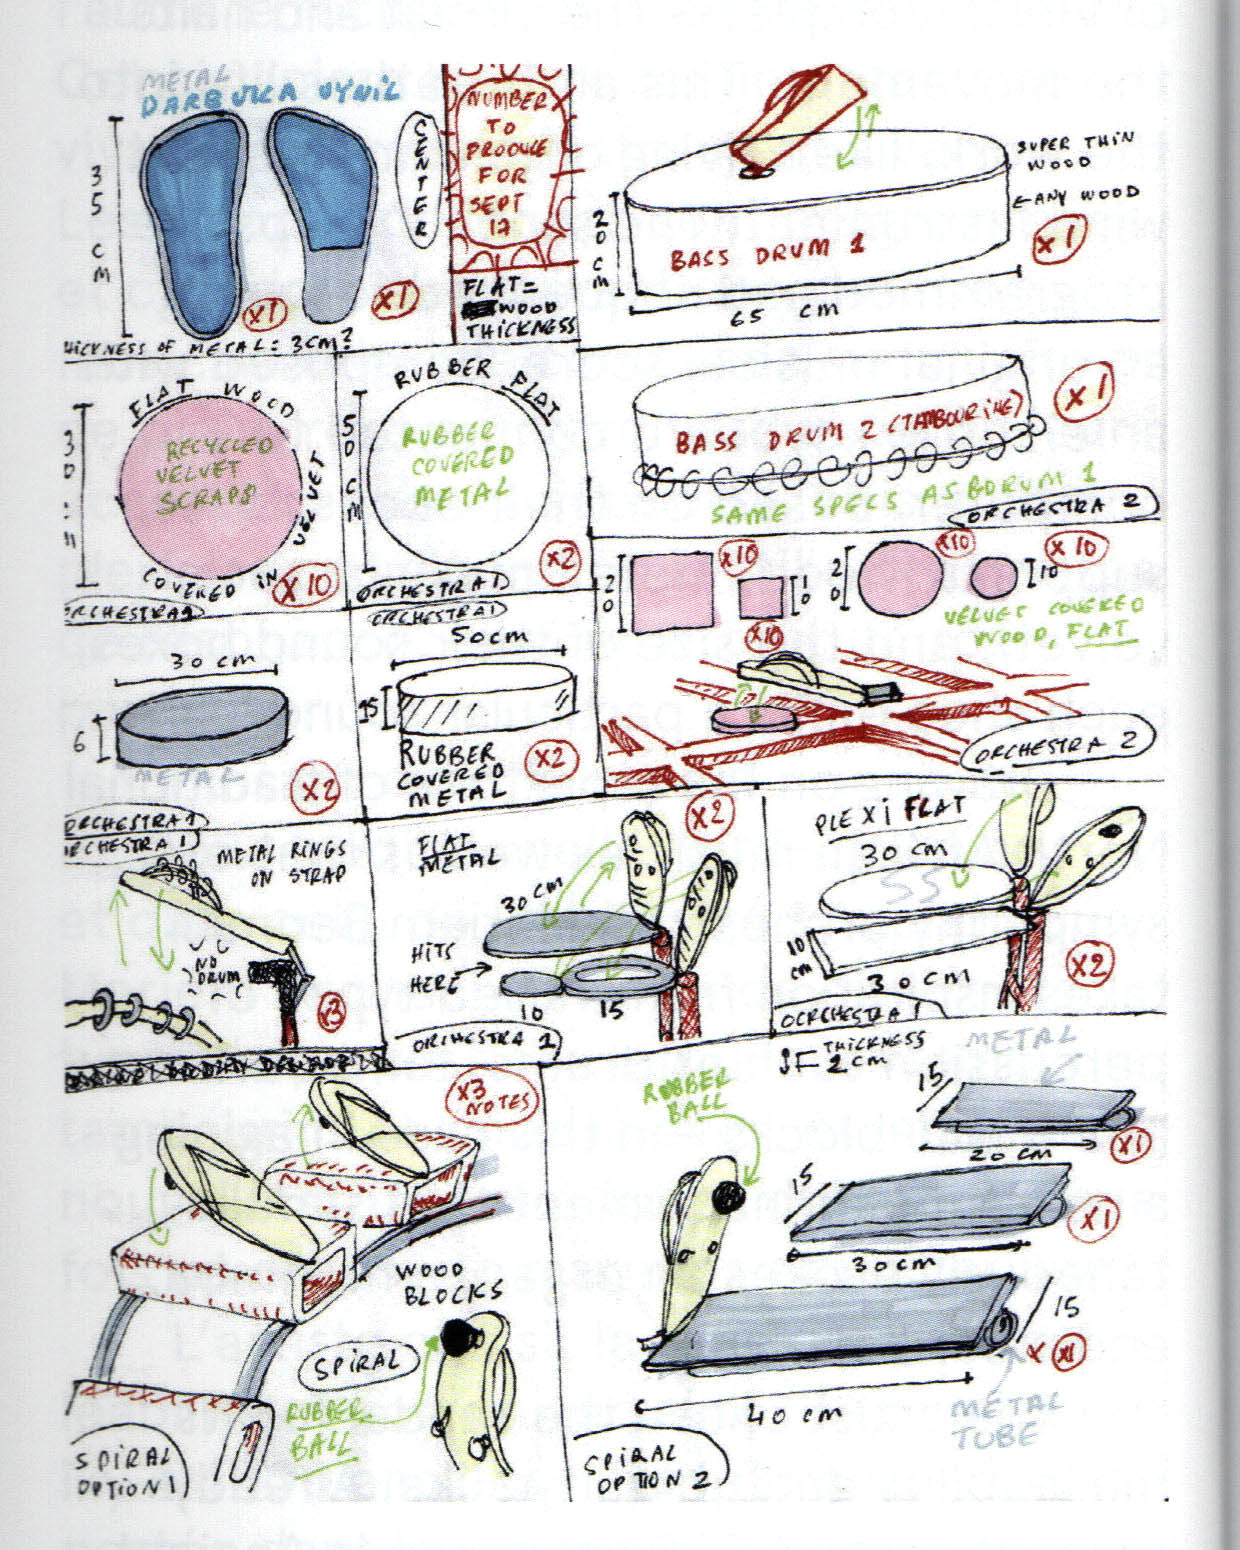 METAL
DARBUKA VYNIL
35 CM
CENTER
X1
X1
THICKNESS OF METAL: 3CM?
NUMBER
TO
PRODUCE
FOR
SEPT
17
FLAT=
WOOD
THICKNESS
SUPER THIN
WOOD
←ANY WOOD
20 CM
BASS DRUM 1
X1
65 CM
FLAT WOOD
COVERED IN VELVET
30
RECYCLED
VELVET
SCRAPS
X10
RUBBER FLAT
50 CM
RUBBER
COVERED
METAL
X2
ORCHESTRA 1
BASS DRUM 2 (TAMBOURINE)
X1
SAME SPECS AS BDRUM 1
ORCHESTRA 2
20
X10
10
X10
20
X10
10
X10
VELVET COVERED
WOOD, FLAT
ORCHESTRA 2
30 CM
6
METAL
X2
ORCHESTRA 1
ORCHESTRA 1
50CM
15
RUBBER
COVERED
METAL
X2
ORCHESTRA 1
METAL RINGS
ON STRAP
NO
DRUM
X3
FLAT
METAL
X2
30 CM
HITS
HERE →
10
15
ORCHESTRA 1
PLEXI FLAT
30 CM
SS
10
CM
30 CM
X2
OCRCHESTRA 1
X3
NOTES
WOOD
BLOCKS
SPIRAL
RUBBER
BALL
SPIRAL
OPTION 1
THICKNESS
2 CM
METAL
RUBBER
BALL
15
20 CM
X1
15
30CM
X1
15
X X1
40 CM
METAL
TUBE
SPIRAL
OPTION 2